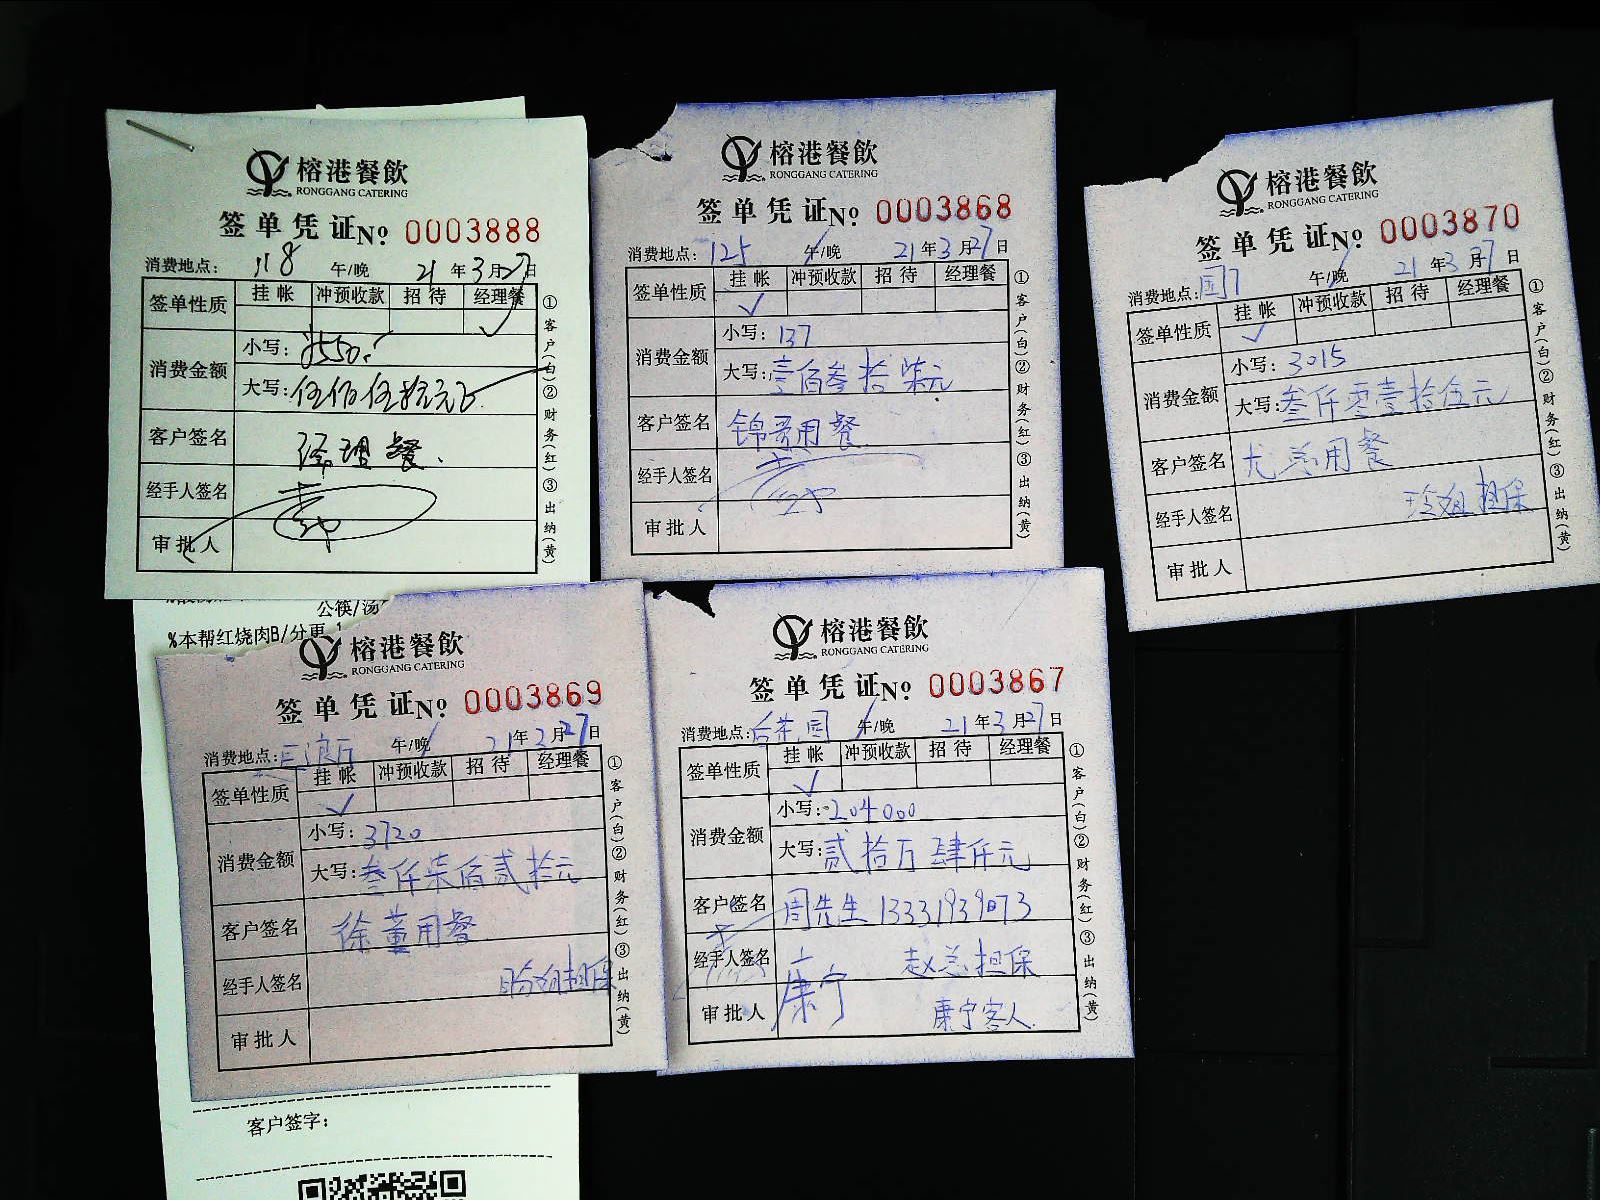 榕港餐飲
RONGGANG CATERING
签单凭证No 0003888
消费地点: 118 午/晚 21年3月27日
签单性质 挂帐 冲预收款 招待 经理餐
✓
消费金额 小写: ¥550.-
大写: 伍佰伍拾元正
客户签名 经理餐.
经手人签名
审批人
①客户(白)②财务(红)③出纳(黄)
榕港餐飲
RONGGANG CATERING
签单凭证No 0003868
消费地点: 125 午/晚 21年3月27日
签单性质 挂帐 冲预收款 招待 经理餐
✓
消费金额 小写: 137
大写: 壹佰叁拾柒元
客户签名 锦哥用餐
经手人签名
审批人
①客户(白)②财务(红)③出纳(黄)
榕港餐飲
RONGGANG CATERING
签单凭证No 0003870
消费地点: 国 午/晚 21年3月27日
签单性质 挂帐 冲预收款 招待 经理餐
✓
消费金额 小写: 3015
大写: 叁仟零壹拾伍元
客户签名 尤总用餐
经手人签名 玲姐担保
审批人
①客户(白)②财务(红)③出纳(黄)
公筷/汤
%本帮红烧肉B/分更
榕港餐飲
RONGGANG CATERING
签单凭证No 0003869
消费地点: 午/晚 21年3月27日
签单性质 挂帐 冲预收款 招待 经理餐
✓
消费金额 小写: 3720
大写: 叁仟柒佰贰拾元
客户签名 徐董用餐
经手人签名 姐担保
审批人
①客户(白)②财务(红)③出纳(黄)
榕港餐飲
RONGGANG CATERING
签单凭证No 0003867
消费地点: 后花园 午/晚 21年3月27日
签单性质 挂帐 冲预收款 招待 经理餐
✓
消费金额 小写: 204000
大写: 贰拾万肆仟元
客户签名 周先生 13331939073
经手人签名 康宁 赵总担保
审批人 康宁客人
①客户(白)②财务(红)③出纳(黄)
客户签字: